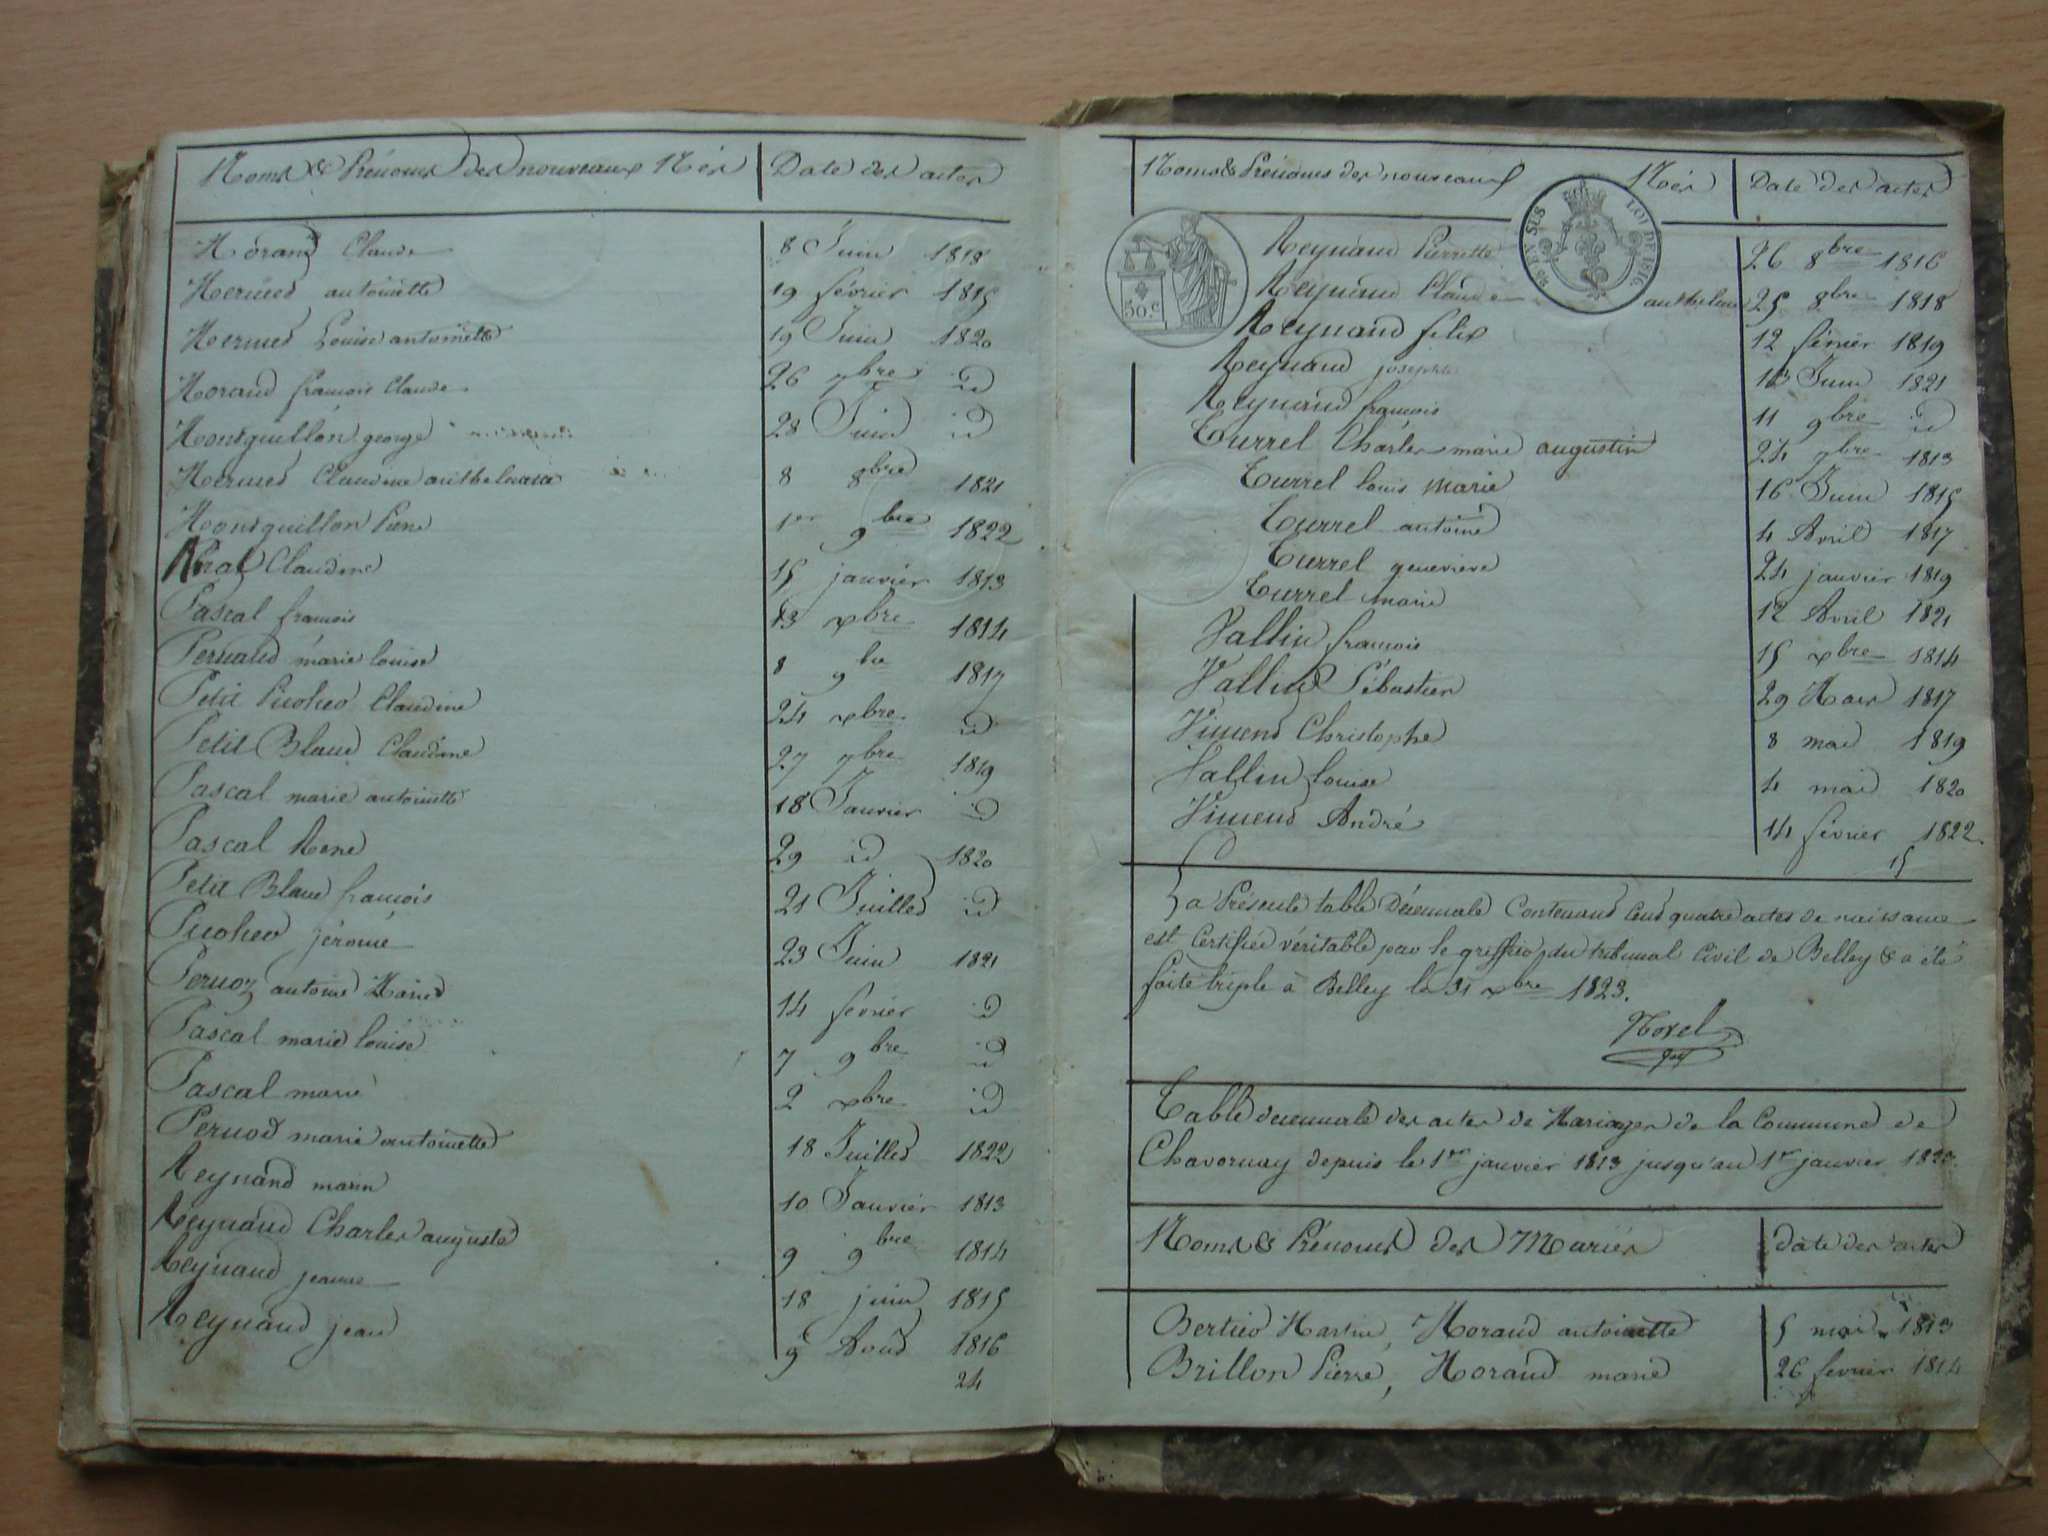 Noms & Prénoms des nouveaux Nés | Date des actes
Morand Claude 8 Juin 1818
Mermet antoinette 19 février 1815
Mermet Louise antoinette 19 Juin 1820
Morand francois Claude 26 7bre id
Montquillon george 28 Juin id
Mermet Claudine anthelmette 8 8bre 1821
Montquillon Pierre 1er 9bre 1822
Claudine 15 janvier 1813
Pascal francois 13 xbre 1814
Pernaud marie louise 8 9bre 1817
Petit Claudine 24 xbre id
Petit Blanc Claudine 27 7bre 1819
Pascal marie antoinette 18 Janvier id
Pascal Rene 29 id 1820
Petit Blanc francois 21 Juillet id
jérome 23 Juin 1821
Pernoz antoine Marie 14 fevrier id
Pascal marie louise 7 9bre id
Pascal marie 2 xbre id
Pernod marie antoinette 18 Juillet 1822
Reynand marin 10 Janvier 1813
Reynaud Charles auguste 9 9bre 1814
Reynaud jeanne 18 juin 1815
Reynaud jean 9 Aout 1816
24
Noms & Prénoms des nouveaux Nés | Date des actes
50.c
LOI DE 1816
Reynaud Pierrette 26 8bre 1816
Reynaud Claude 25 8bre 1818
Reynaud felix 12 février 1819
Reynaud josephte 13 Juin 1821
Reynaud francois 11 9bre id
Turrel Charles marie augustin 24 7bre 1813
Turrel louis marie 16 Juin 1815
Turrel antoine 4 Avril 1817
Turrel genevieve 24 janvier 1819
Turrel marie 12 Avril 1821
Vallin francois 15 xbre 1814
Vallin Sébastien 29 Mars 1817
Vimend Christophe 8 mai 1819
Vallin louise 4 mai 1820
Vimend André 14 février 1822
15
La Présente table Décennale Contenant Cent quatre actes de naissance
est Certifiée véritable par le greffier du tribunal Civil de Belley & a été
faite triple à Belley le 31 xbre 1823.
Table decennale des actes de Mariages de la Commune de
Chavornay depuis le 1er janvier 1813 jusqu'au 1er janvier 1823.
Noms & Prénoms des Mariés | date des actes
Bertier Martin, Morand antoinette 5 mai 1813
Brillon Pierre, Morand marie 26 fevrier 1814